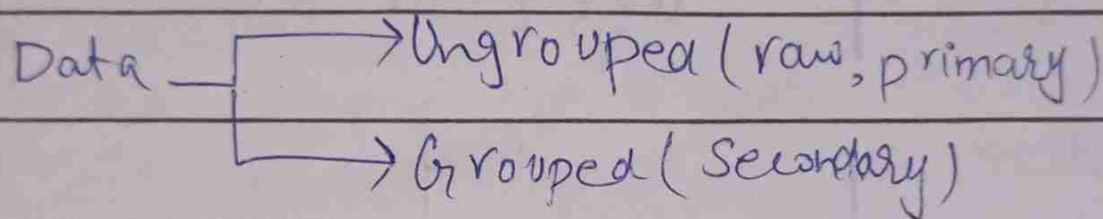 Data → Ungrouped (raw, primary)
→ Grouped (Secondary)